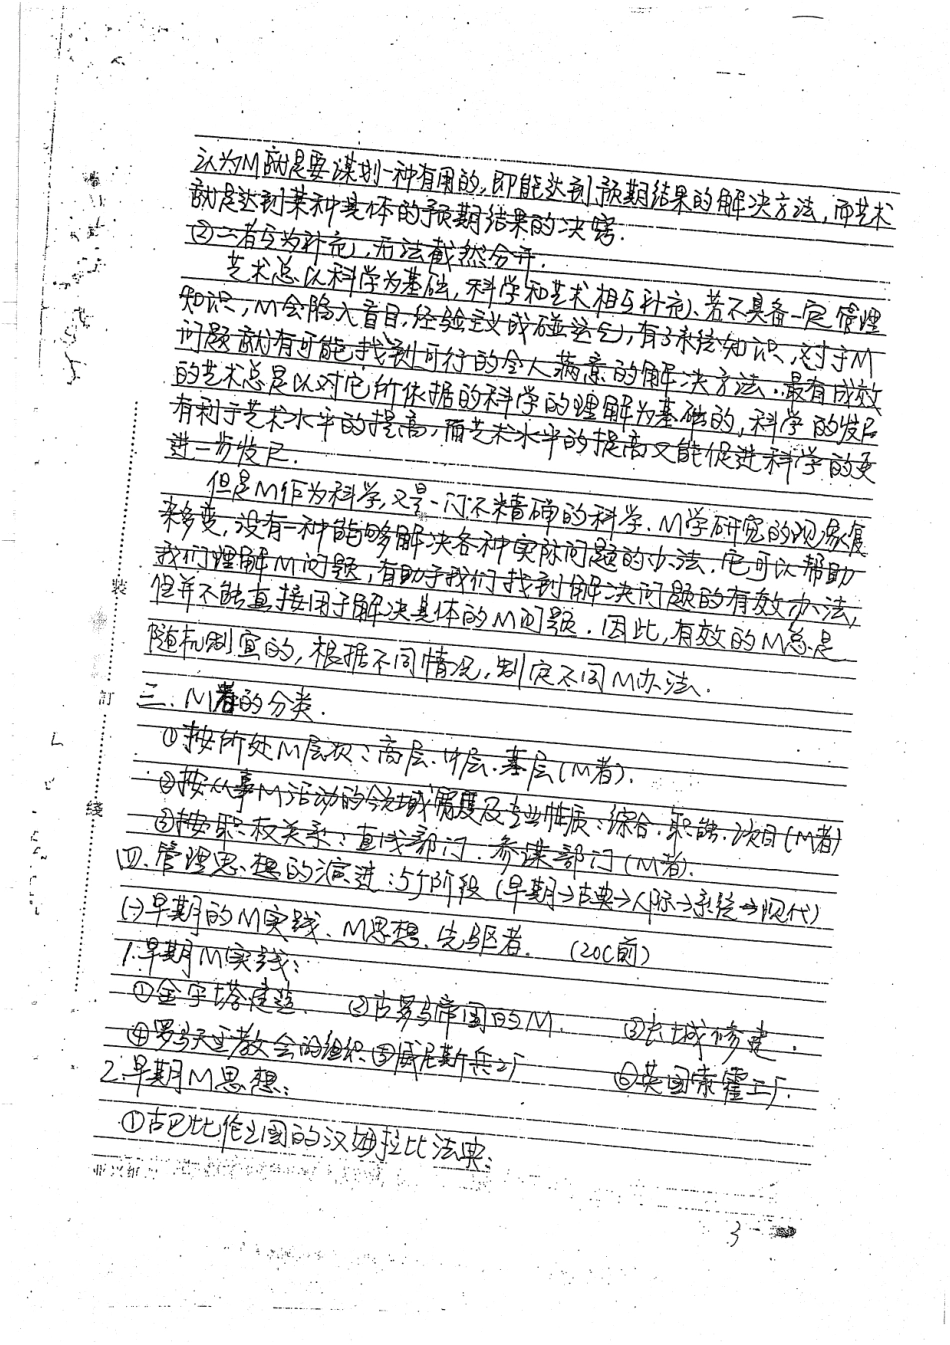 认为M就是要谋划一种有用的,即能达到预期结果的解决方法,而艺术
就是达到某种具体的预期结果的决窍.
②二者互为补充,无法截然分开.
艺术总以科学为基础,科学和艺术相互补充.若不具备一定管理
知识,M会陷入盲目,经验主义或碰运气,有了系统知识,对于M
问题就有可能找到可行的令人满意的解决方法.最有成效
的艺术总是以对它所依据的科学的理解为基础的,科学的发展
有利于艺术水平的提高,而艺术水平的提高又能促进科学的更
进一步发展.
但是M作为科学,又是一门不精确的科学.M学研究的现象复
杂多变,没有一种能够解决各种实际问题的办法.它可以帮助
我们理解M问题,有助于我们找到解决问题的有效办法,
但并不能直接用于解决具体的M问题.因此,有效的M总是
随机制宜的,根据不同情况,制定不同M办法.
三.M者的分类.
①按所处M层次:高层.中层.基层(M者).
②按从事M活动的领域宽度及专业性质:综合.职能.项目(M者)
③按职权关系:直线部门.参谋部门(M者).
四.管理思想的演进:5个阶段(早期→古典→人际→系统→现代)
(一)早期的M实践、M思想、先驱者. (20C前)
1.早期M实践:
①金字塔建造. ②古罗马帝国的M. ③长城修建.
④罗马天主教会的组织.⑤威尼斯兵工厂 ⑥英国索霍工厂.
2.早期M思想:
①古巴比伦王国的汉姆拉比法典;
装
訂
綫
3